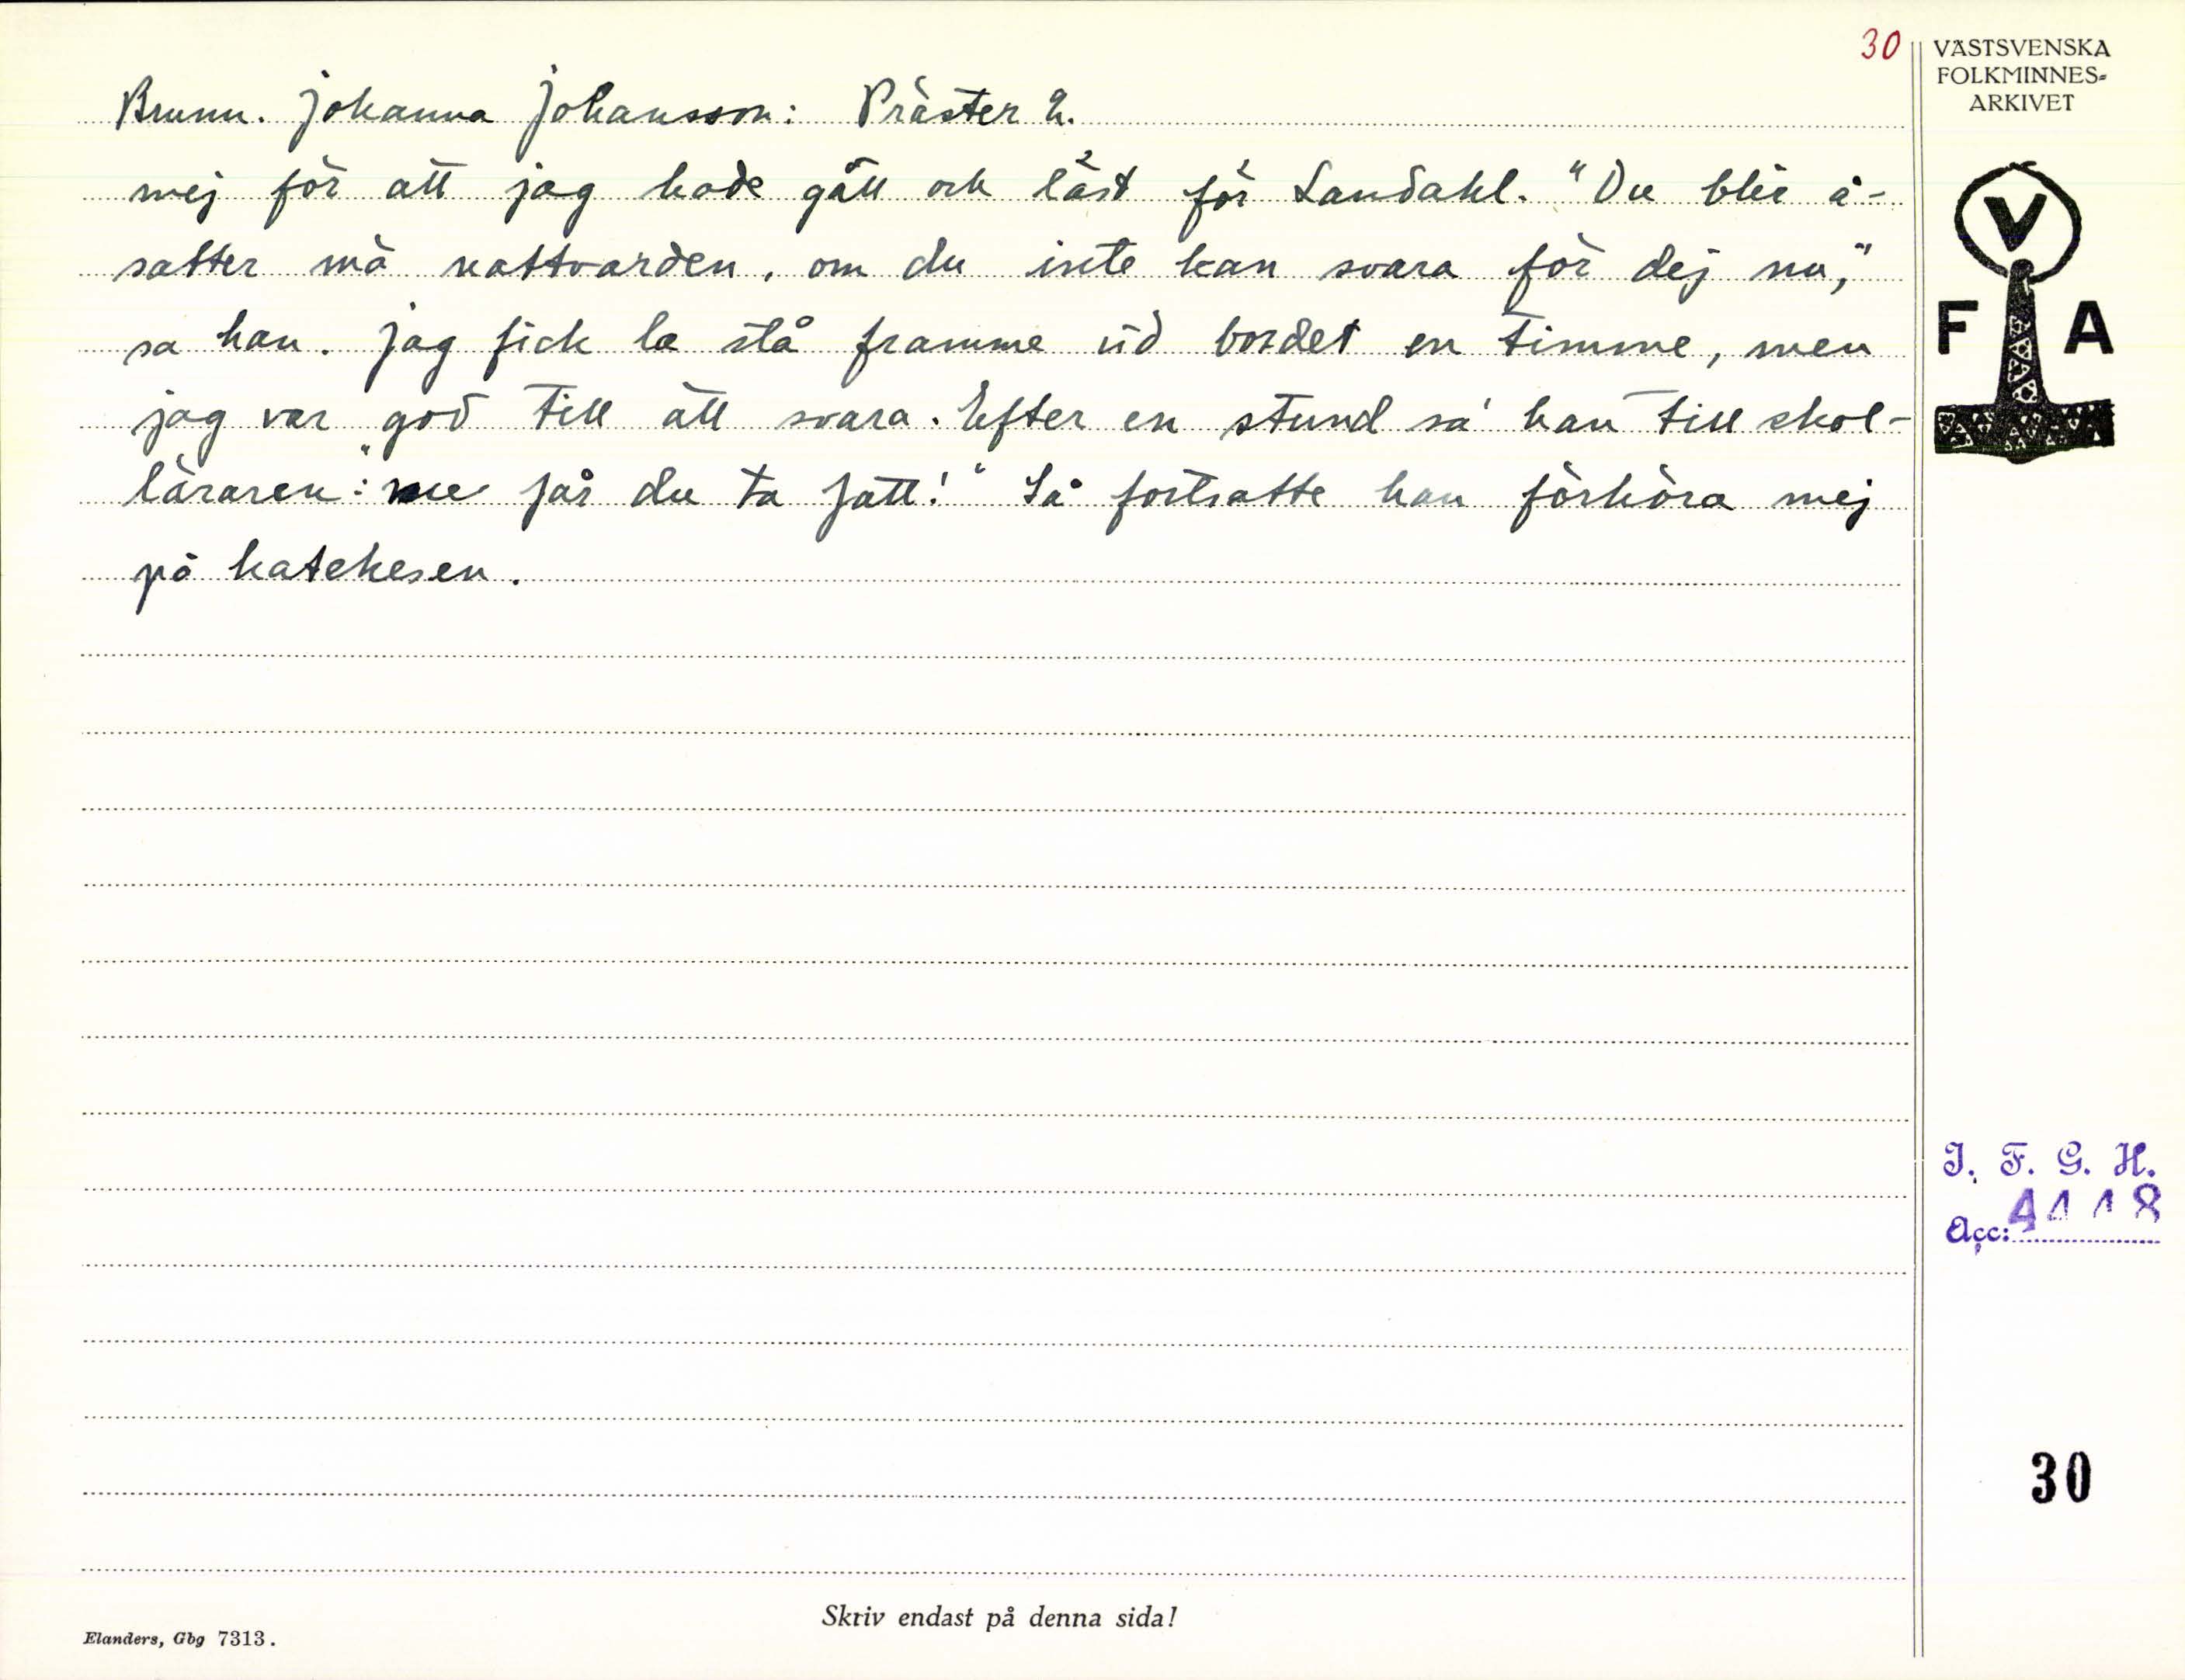 30
VÄSTSVENSKA
FOLKMINNES-
ARKIVET
Brunn. Johanna Johansson: Präster 2.
mej för att jag hade gått och läst för Landahl. "Du blir å-
satter må nattvarden, om du inte kan svara för dej nu,"
sa han. Jag fick la stå framme vid bordet en timme, men
jag var god till att svara. Efter en stund sa' han till skol-
läraren: "nu får du ta fatt!" Så fortsatte han förhöra mej
på katekesen.
V
F A
I. F. G. H.
Acc: 4118
30
Skriv endast på denna sida!
Elanders, Gbg 7313.